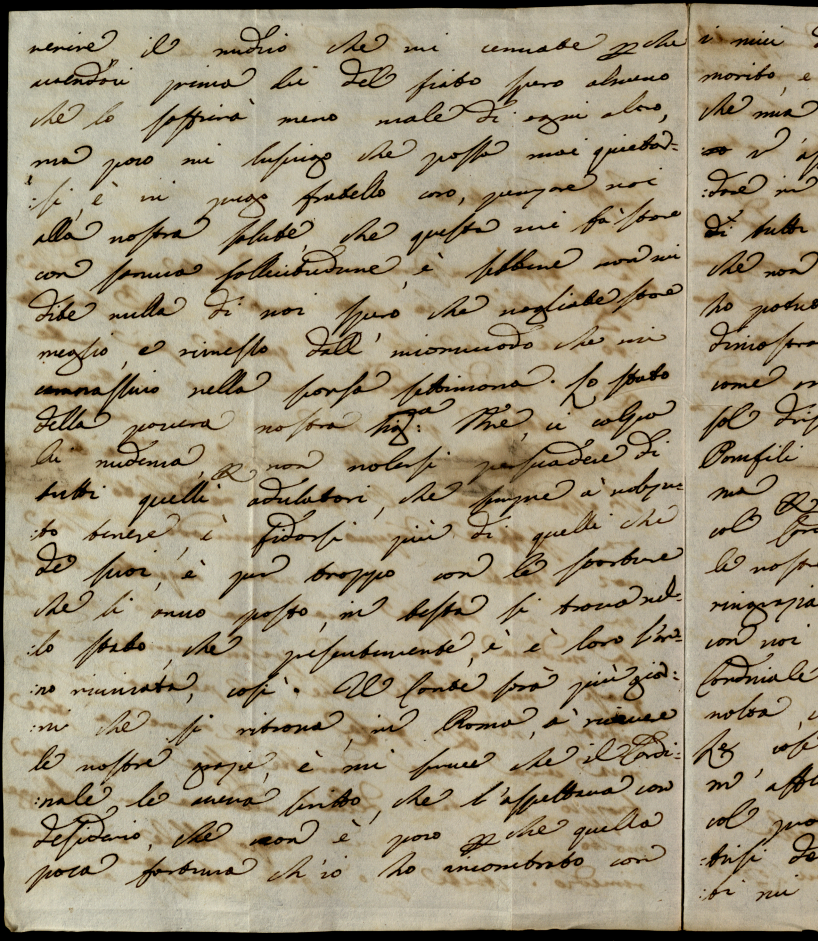 venire il medico che mi cennate che
avendovi prima lui del fiato spero almeno
che lo soffrirà meno male di ogni altro,
ma poco mi lusingo che possa mai quietar=
:si, è vi prego fratello caro, pensare voi
alla vostra salute, che questa mi fà stare
con somma sollecitudine, è sebbene non mi
dite nulla di voi spero che vogliate stare
meglio, e rimesso dall' incommodo che mi
nella scorsa settimana. Lo stato
della povera nostra Sig:ra Mre, ci colpa
lei medema, non volersi persuadere di
tutti quelli adulatori, che sempre à volsu=
:to tenere, è fidarsi più di quelli che
de suoi, è pur troppo con le storture
che li anno posto, in testa si trova nel=
:lo stato, che presentemente, è è loro l'an=
:no rovinata, così. Il Conte sarà più gior=
:ni che si ritrova, in Roma, à ricevere
le vostre grazie, è mi scrive che il Cardi=
:nale le aveva scritto, che l'aspettava con
desiderio, che non è poco che quella
poca fortuna ch'io ho incontrato con
i miei
morito, e
che mia
v' as
:dare in
di tutti
che non
ho potuto
dimostra
come
sol
Pomfili
ma
col
le vostre
ringrazia
con voi
Cordiale
volta,
così
m' aff
col
:trisi de
:ti mi